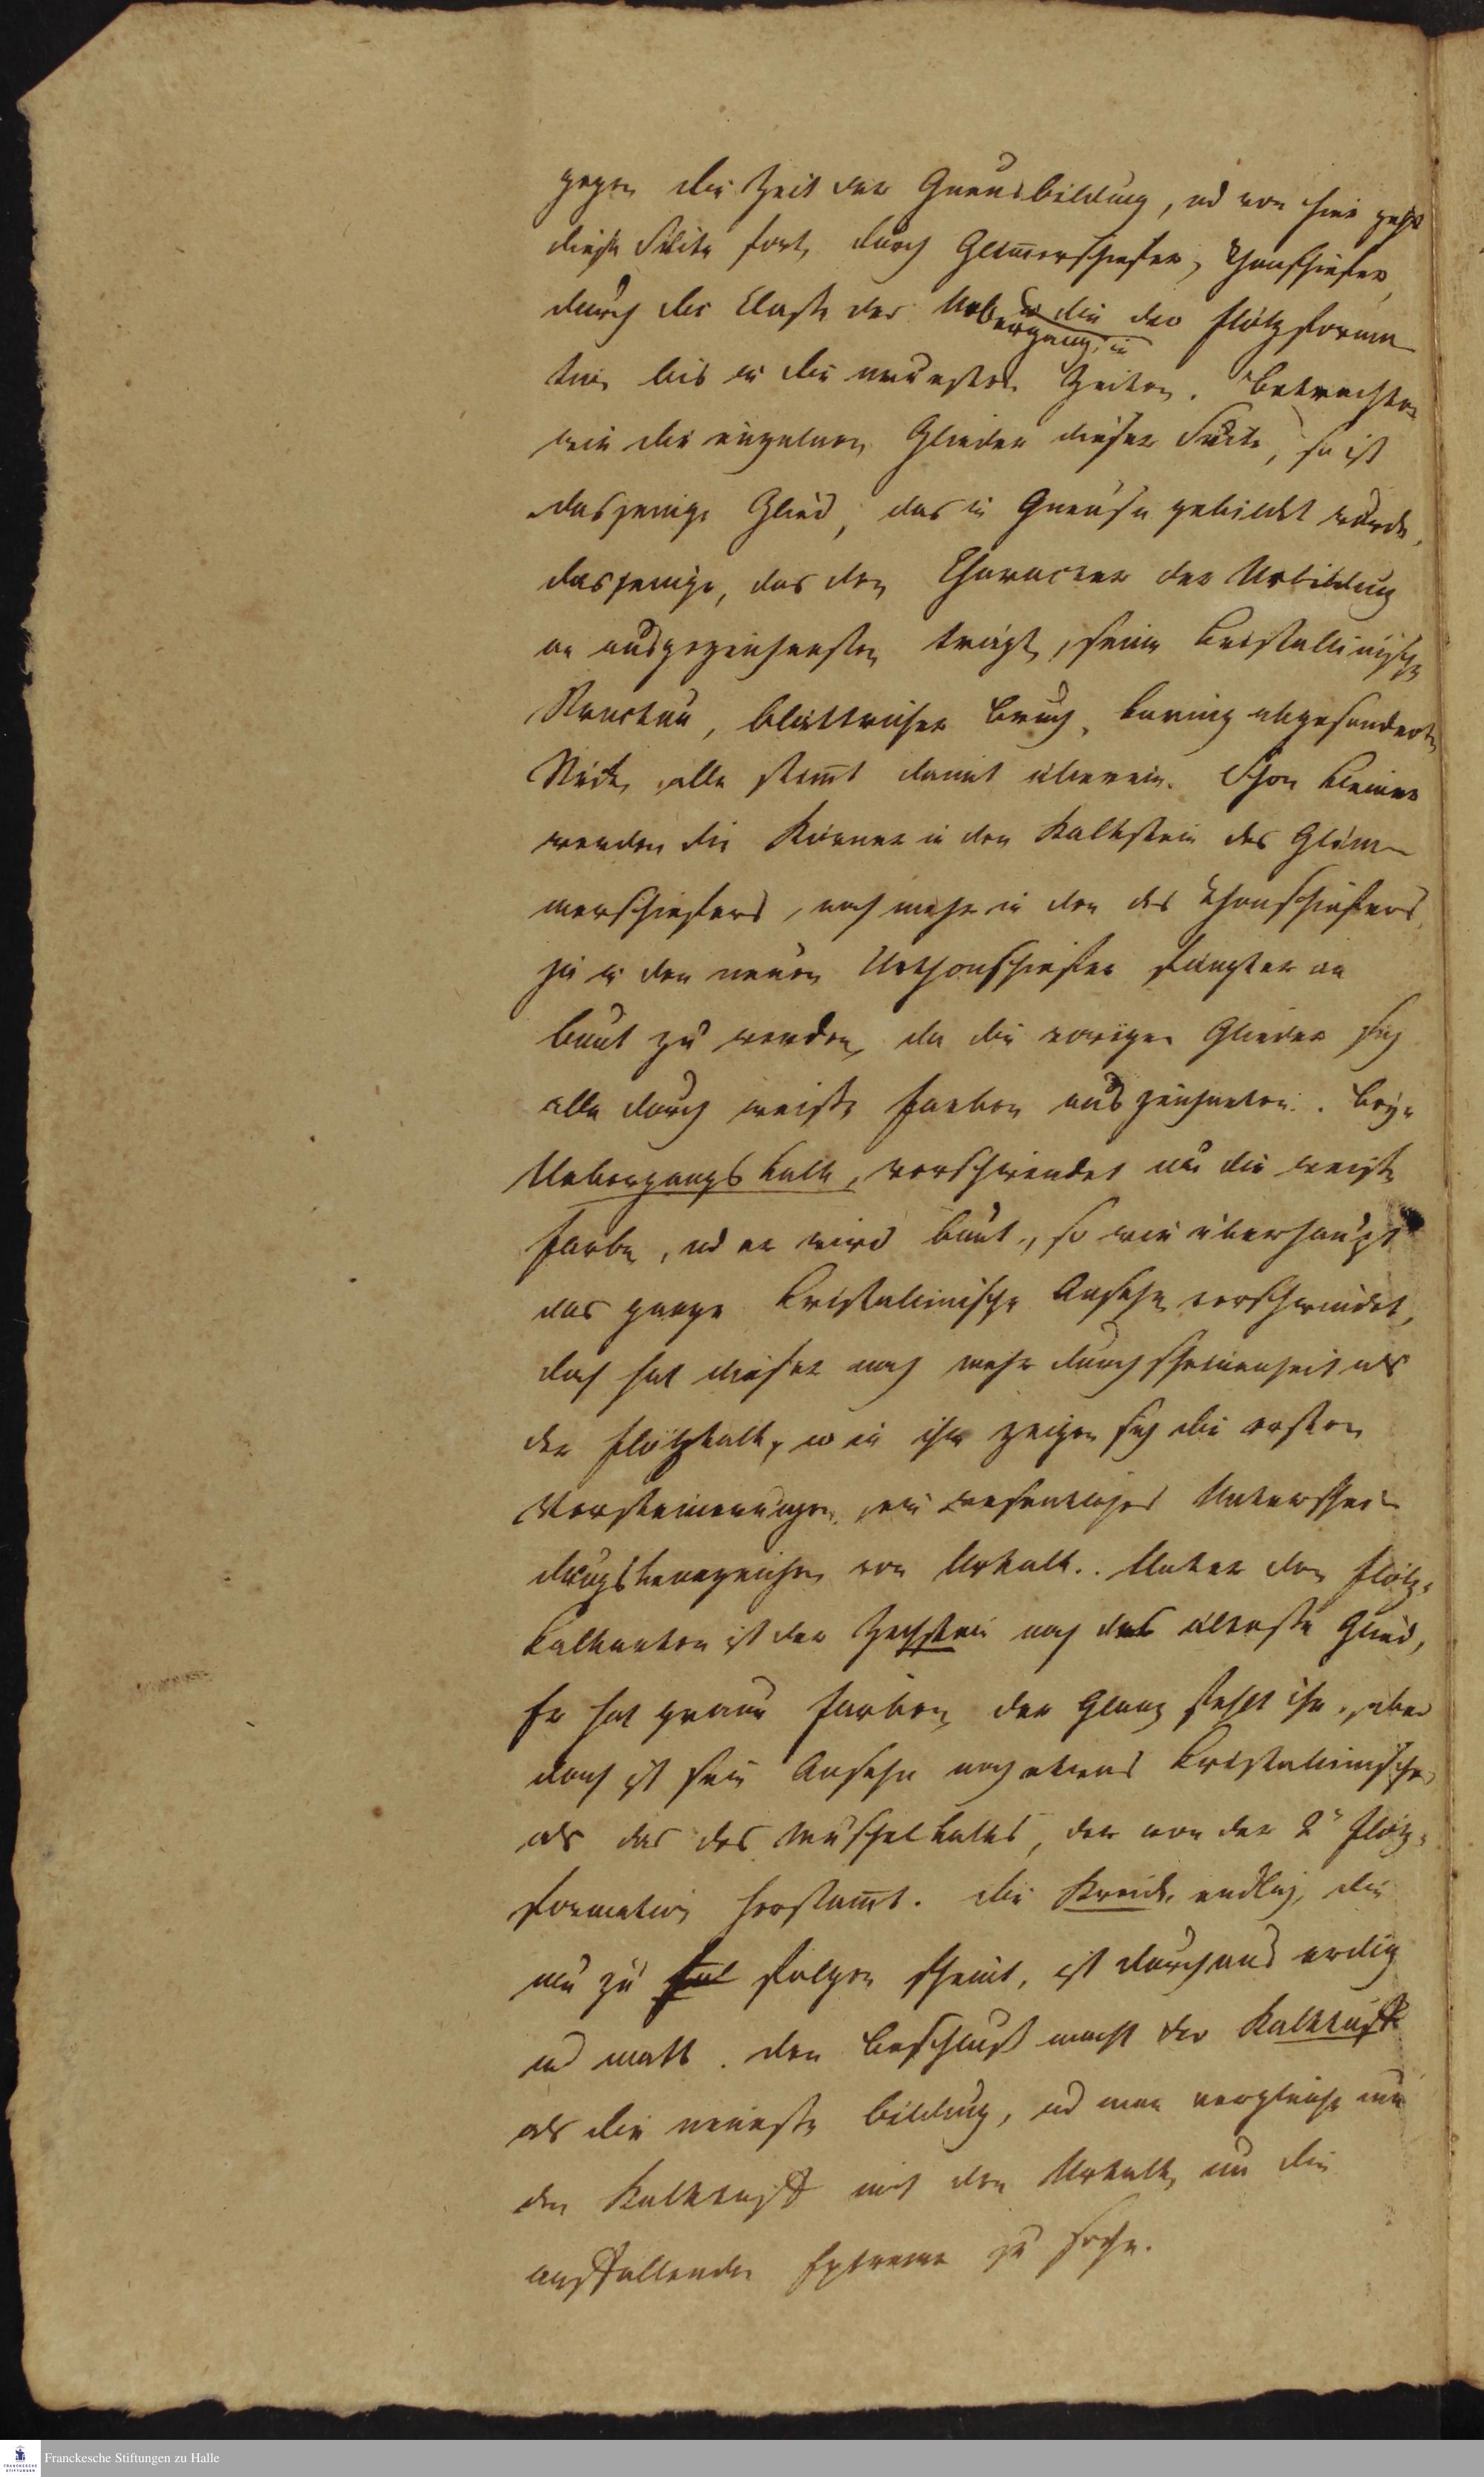 gegen die Zeit der Gneusbildung, ud von hier geht
diese Suite fort, durch Glim̅erschiefer, Thonschiefer,
durch die Classe der Uebergang, in die der Flötzforma
tion bis in die neuesten Zeiten. Betrachten
wir die einzelnen Glieder dieser Suite, so ist
dasjenige Glied, das in Gneuse gebildet wurde,
dasjenige, das den Character der Urbildung
am ausgezeichnesten trägt, seine kristallinische
Structur, blättricher Bruch, körnig abgesonderte
Stücke, alle stim̅t damit überein. Schon kleiner
werden die Körner in den Kalkstein des Glim
merschiefers, noch mehr in den des Thonschiefers,
ja in den neuen Urthonschiefer fängt er an
bunt zu werden, da die vorigen Glieder sich
alle durch weisse Farben auszeichneten. Beym
Uebergangskalk, verschwindet nun die weisse
Farbe, ud er wird bunt, so wie überhaupt
das ganze kristallinische Ansehn verschwindet,
doch hat dieser noch mehr Durchscheinenheit als
der Flötzkalk, u in ihm zeigen sich die ersten
Versteinerungen, ein wesentliches Unterschei
dungskennzeichen von Urkalk. Unter den Flötz-
kalkarten ist der Zechstein noch das älteste Glied,
Er hat graue Farben, der Glanz fehlt ihm, aber
doch ist sein Ansehn noch etwas kristallinischer
als das des Muschelkalks, der von der 2n Flötz-
formation herstam̅t. Die Kreide endlich, die
nun zu fol folgen scheint, ist durchaus erdig
ud matt. Den Beschluß macht der Kalktuff
als die neueste Bildung, ud man vergleiche nur
den Kalktuff mit den Urkalk, um die
auffallenden Extreme zu sehen.
Franckesche Stiftungen zu Halle